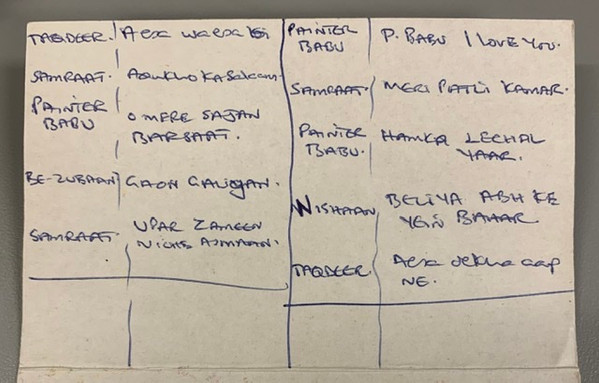 TAQDEER. Aesa waesa koi
SAMRAAT. Aankho ka Salaam.
PAINTER BABU O MERE SAJAN
BARSAAT.
BE-ZUBAAN GAON GAVOGAN.
SAMRAAT. UPAR ZAMEEN
NICHE ASMAAN.
PAINTER BABU P. BABU I LOVE YOU.
SAMRAAT. MERI PATLI KAMAR.
PAINTER BABU. HAMKA LECHAL
YAAR.
NISHAAN BELIYA ABH KE
YEIN BAHAR
TAQDEER Aesa dekha aap
NE.